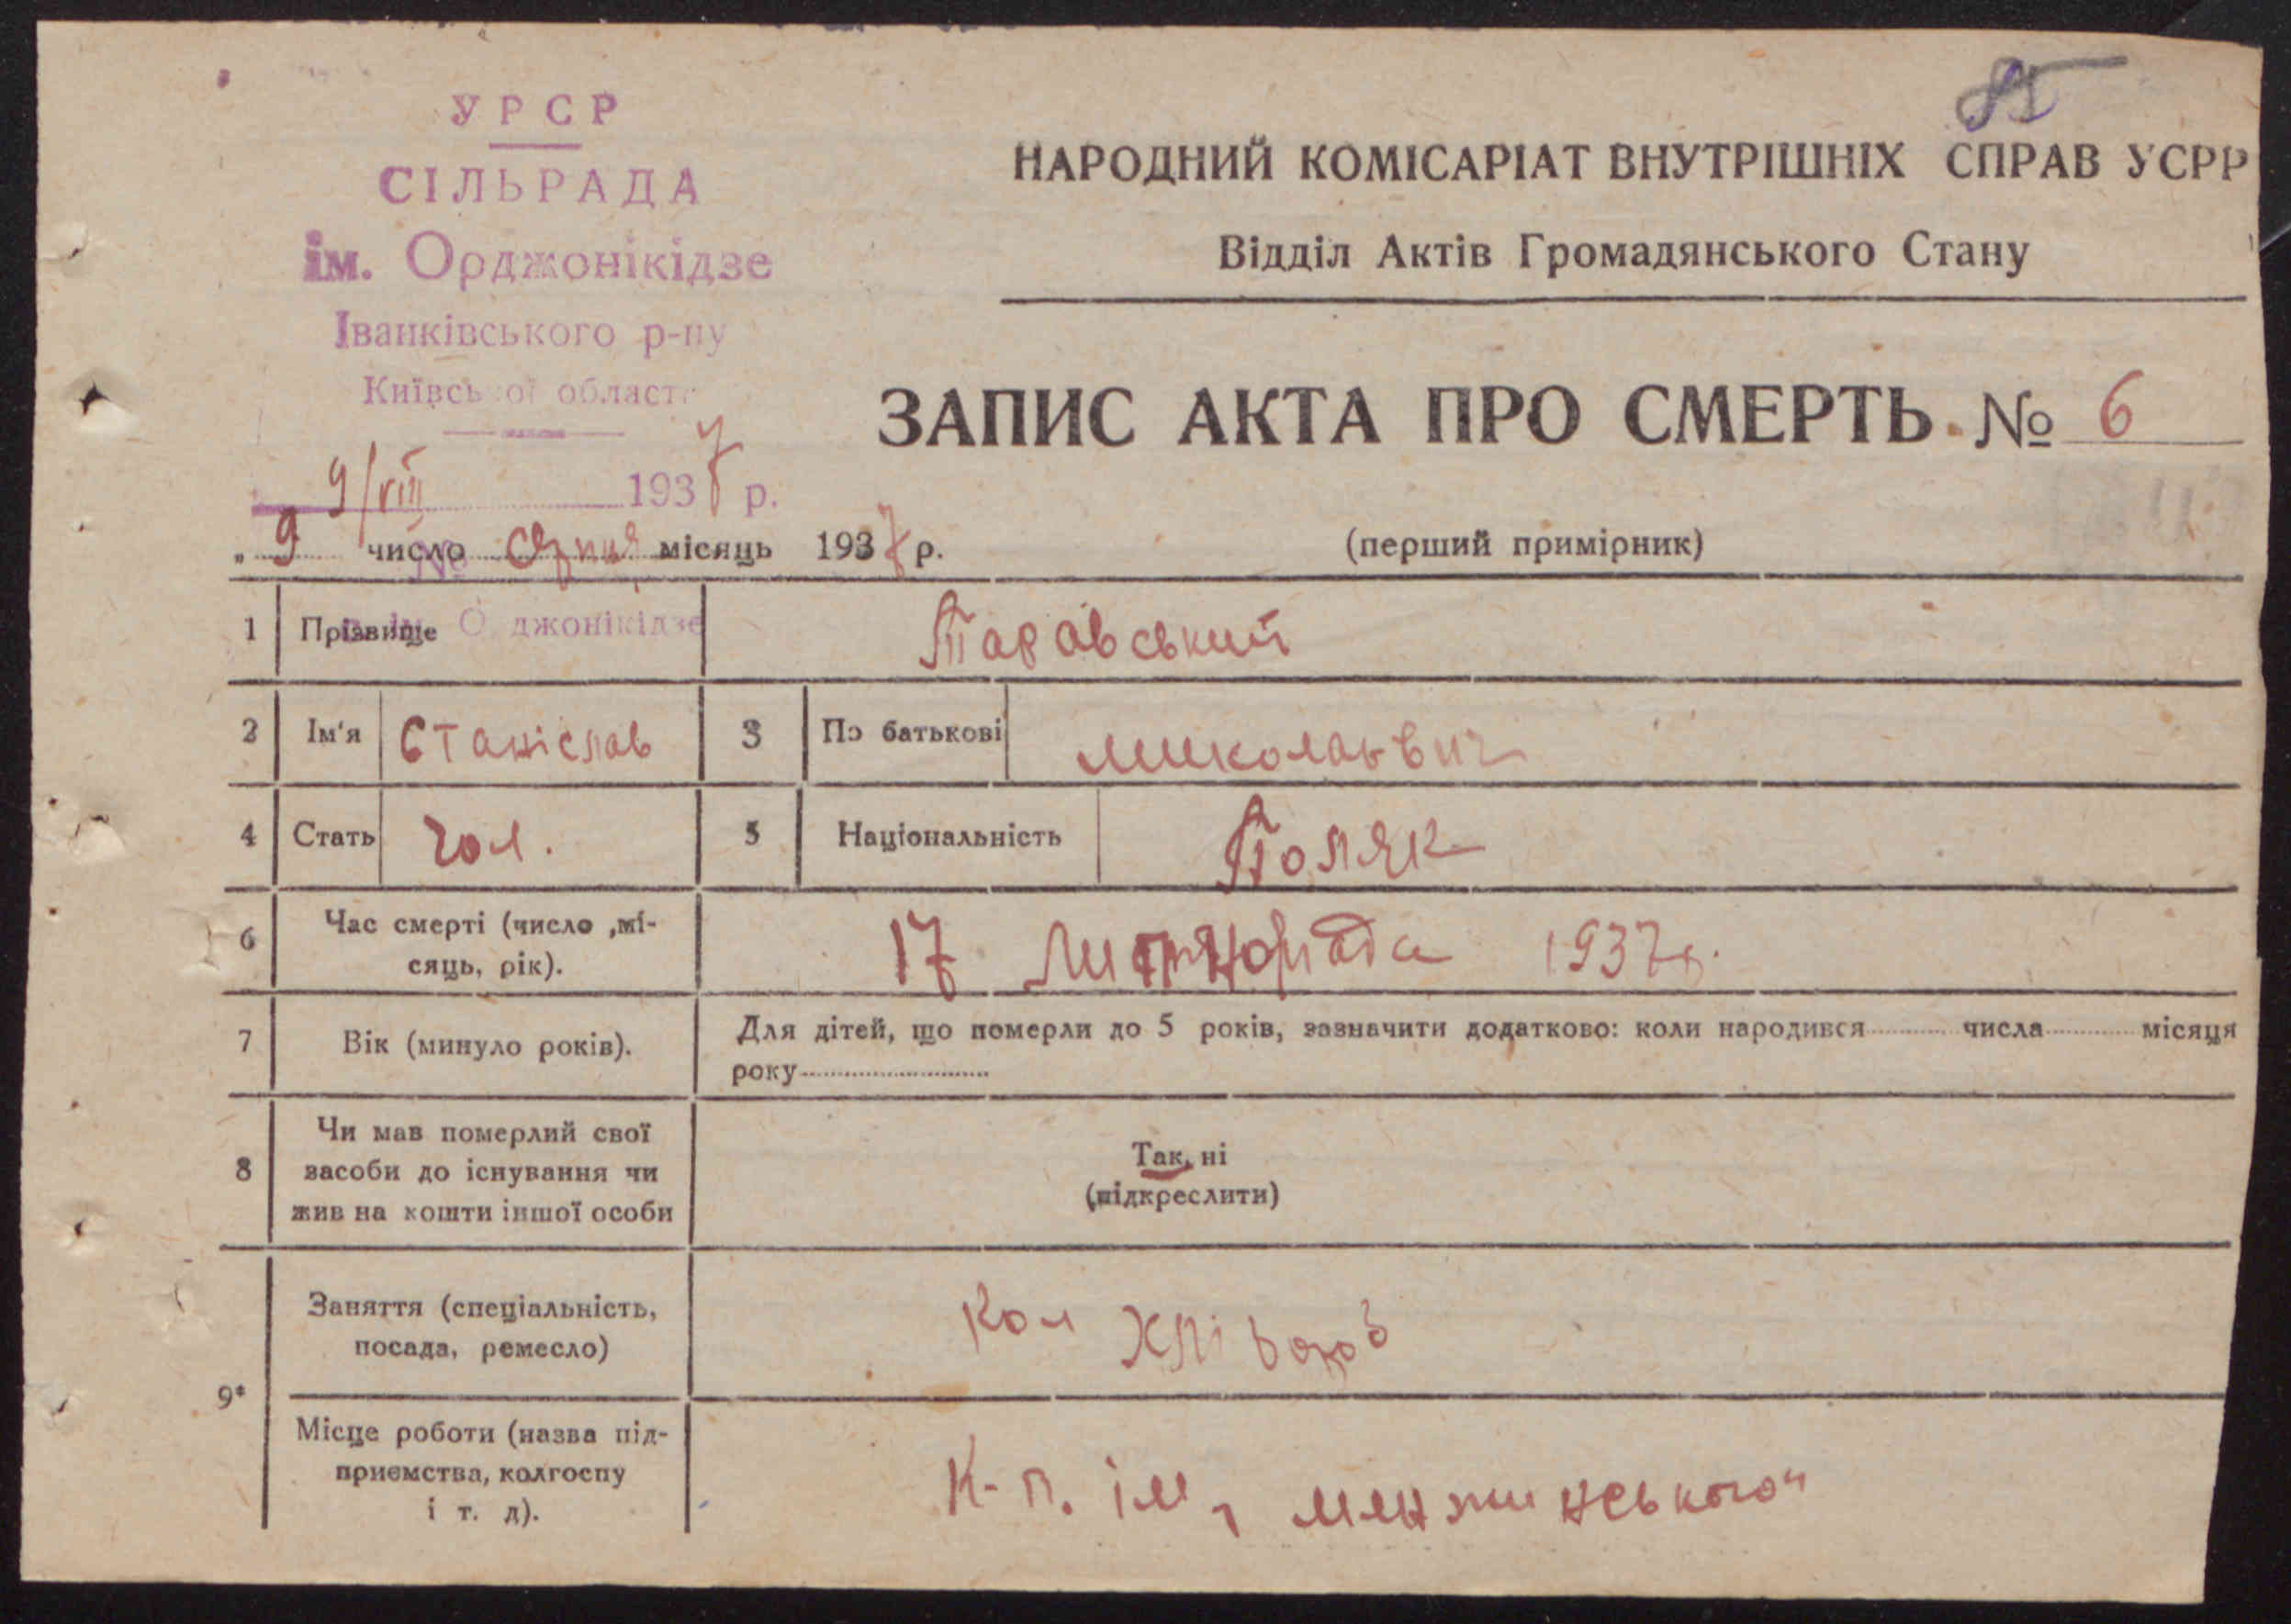 УРСР
СІЛЬРАДА
ім. Орджонікідзе
Іванківського р-ну
Київської області
9/VIII 1937 р.
НАРОДНИЙ КОМІСАРІАТ ВНУТРІШНІХ СПРАВ УСРР
Відділ Актів Громадянського Стану
ЗАПИС АКТА ПРО СМЕРТЬ № 6
„ 9 число серпня місяць 1937 р.
(перший примірник)
1 Прізвище Таравський
2 Ім'я Станіслав 3 По батькові миколаьвич
4 Стать чол. 5 Національність Поляк
6 Час смерті (число ,мі-
сяць, рік).
17 Листнопада 1937р.
7 Вік (минуло років).
Для дітей, що померли до 5 років, зазначити додатково: коли народився числа місяця
року
8 Чи мав померлий свої
засоби до існування чи
жив на кошти іншої особи
Так, ні
(підкреслити)
9*
Заняття (спеціальність,
посада, ремесло)
Кол хлібороб
Місце роботи (назва під-
приємства, колгоспу
і т. д).
К-п. ім, менжинського"